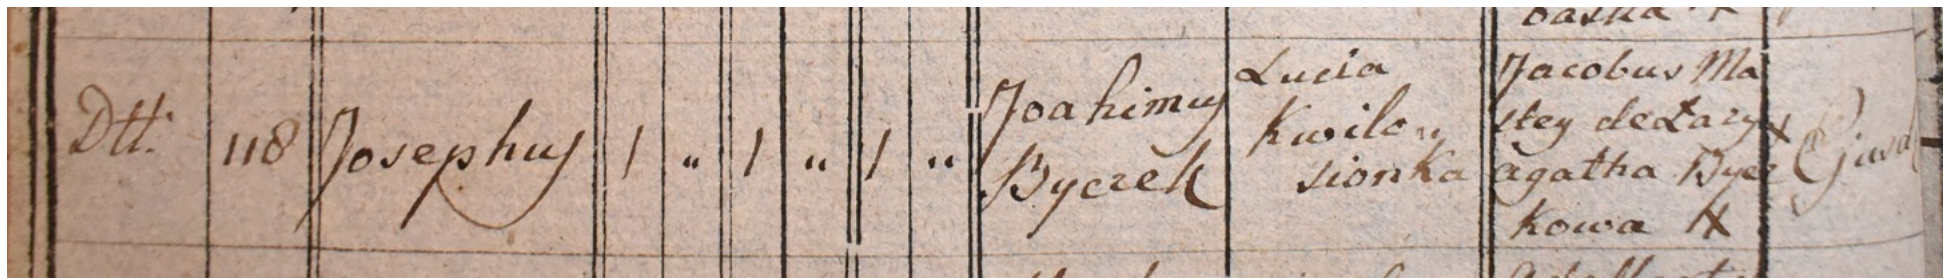 Dtt. 118 Josephus 1 " 1 " 1 "
Joahimus
Byczek
Lucia
Kwilon
sionka
Jacobus Ma
stey de Lazy X
agatha Bycz
kowa X